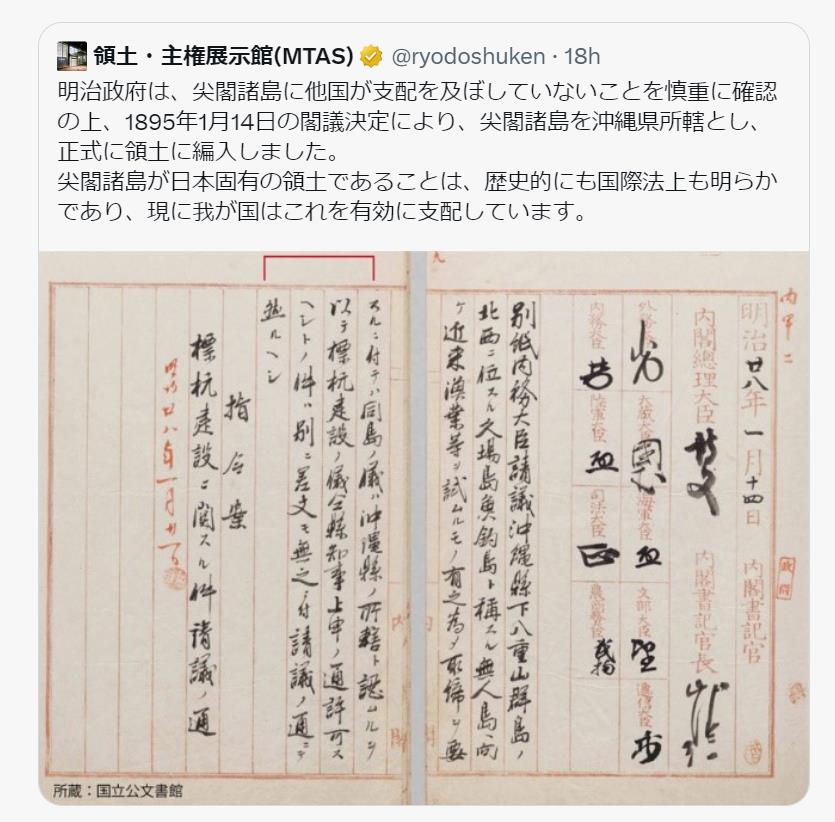 領土・主権展示館(MTAS) @ryodoshuken · 18h
明治政府は、尖閣諸島に他国が支配を及ぼしていないことを慎重に確認
の上、1895年1月14日の閣議決定により、尖閣諸島を沖縄県所轄とし、
正式に領土に編入しました。
尖閣諸島が日本固有の領土であることは、歴史的にも国際法上も明らか
であり、現に我が国はこれを有効に支配しています。
内甲二
明治廿八年一月十四日 内閣書記官
内閣總理大臣 内閣書記官長
外務大臣 大蔵大臣 海軍大臣 文部大臣 逓信大臣
内務大臣 陸軍大臣 司法大臣 農商務大臣
別紙内務大臣請議沖縄縣下八重山群島ノ
北西ニ位スル久場島魚釣島ト稱スル無人島ヘ向
ケ近来漁業等ヲ試ムルモノ有之為メ取締ヲ要
スルニ付テハ同島ノ儀ハ沖縄縣ノ所轄ト認ムルヲ
以テ標杭建設ノ儀仝縣知事上申ノ通許可ス
ヘシトノ件ハ別ニ差支モ無之ニ付請議ノ通ニテ
然ルヘシ
指令案
標杭建設ニ関スル件請議ノ通
明治廿八年一月廿一日
所蔵：国立公文書館